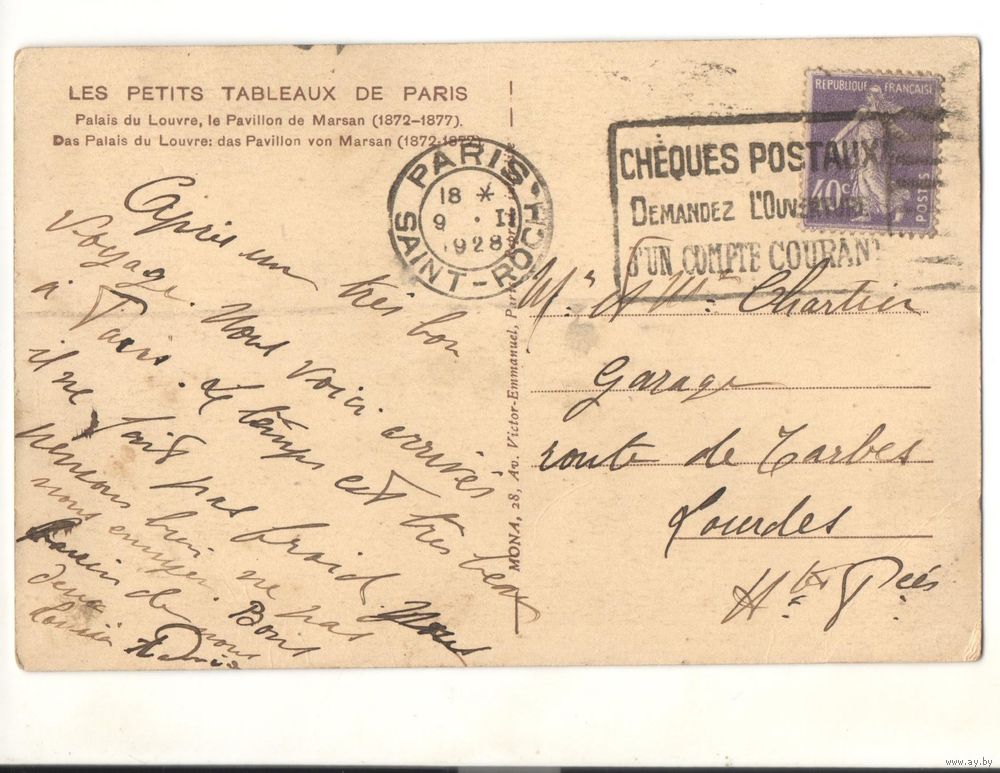 LES PETITS TABLEAUX DE PARIS
Palais du Louvre, le Pavillon de Marsan (1872-1877).
Das Palais du Louvre: das Pavillon von Marsan (1872-1877)
Après un très bon
Voyage. Nous voici arrivés
à Paris. Le temps est très beau
il ne fait pas froid. Nous
pensons bien ne pas
nous ennuyer. Bons
de nous
deux
MONA, 28, Av. Victor-Emmanuel, Paris
PARIS
18 *
9 · II
1928
SAINT-ROCH
CHÈQUES POSTAUX
DEMANDEZ L'OUVERTURE
D'UN COMPTE COURANT
REPUBLIQUE FRANÇAISE
40c
POSTES
Mr et Mme Chartier
Garage
route de Tarbes
Lourdes
Htes Pées
www.ay.by